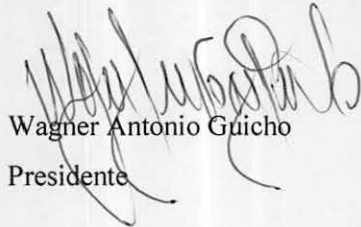 Wagner Antonio Guicho
Presidente